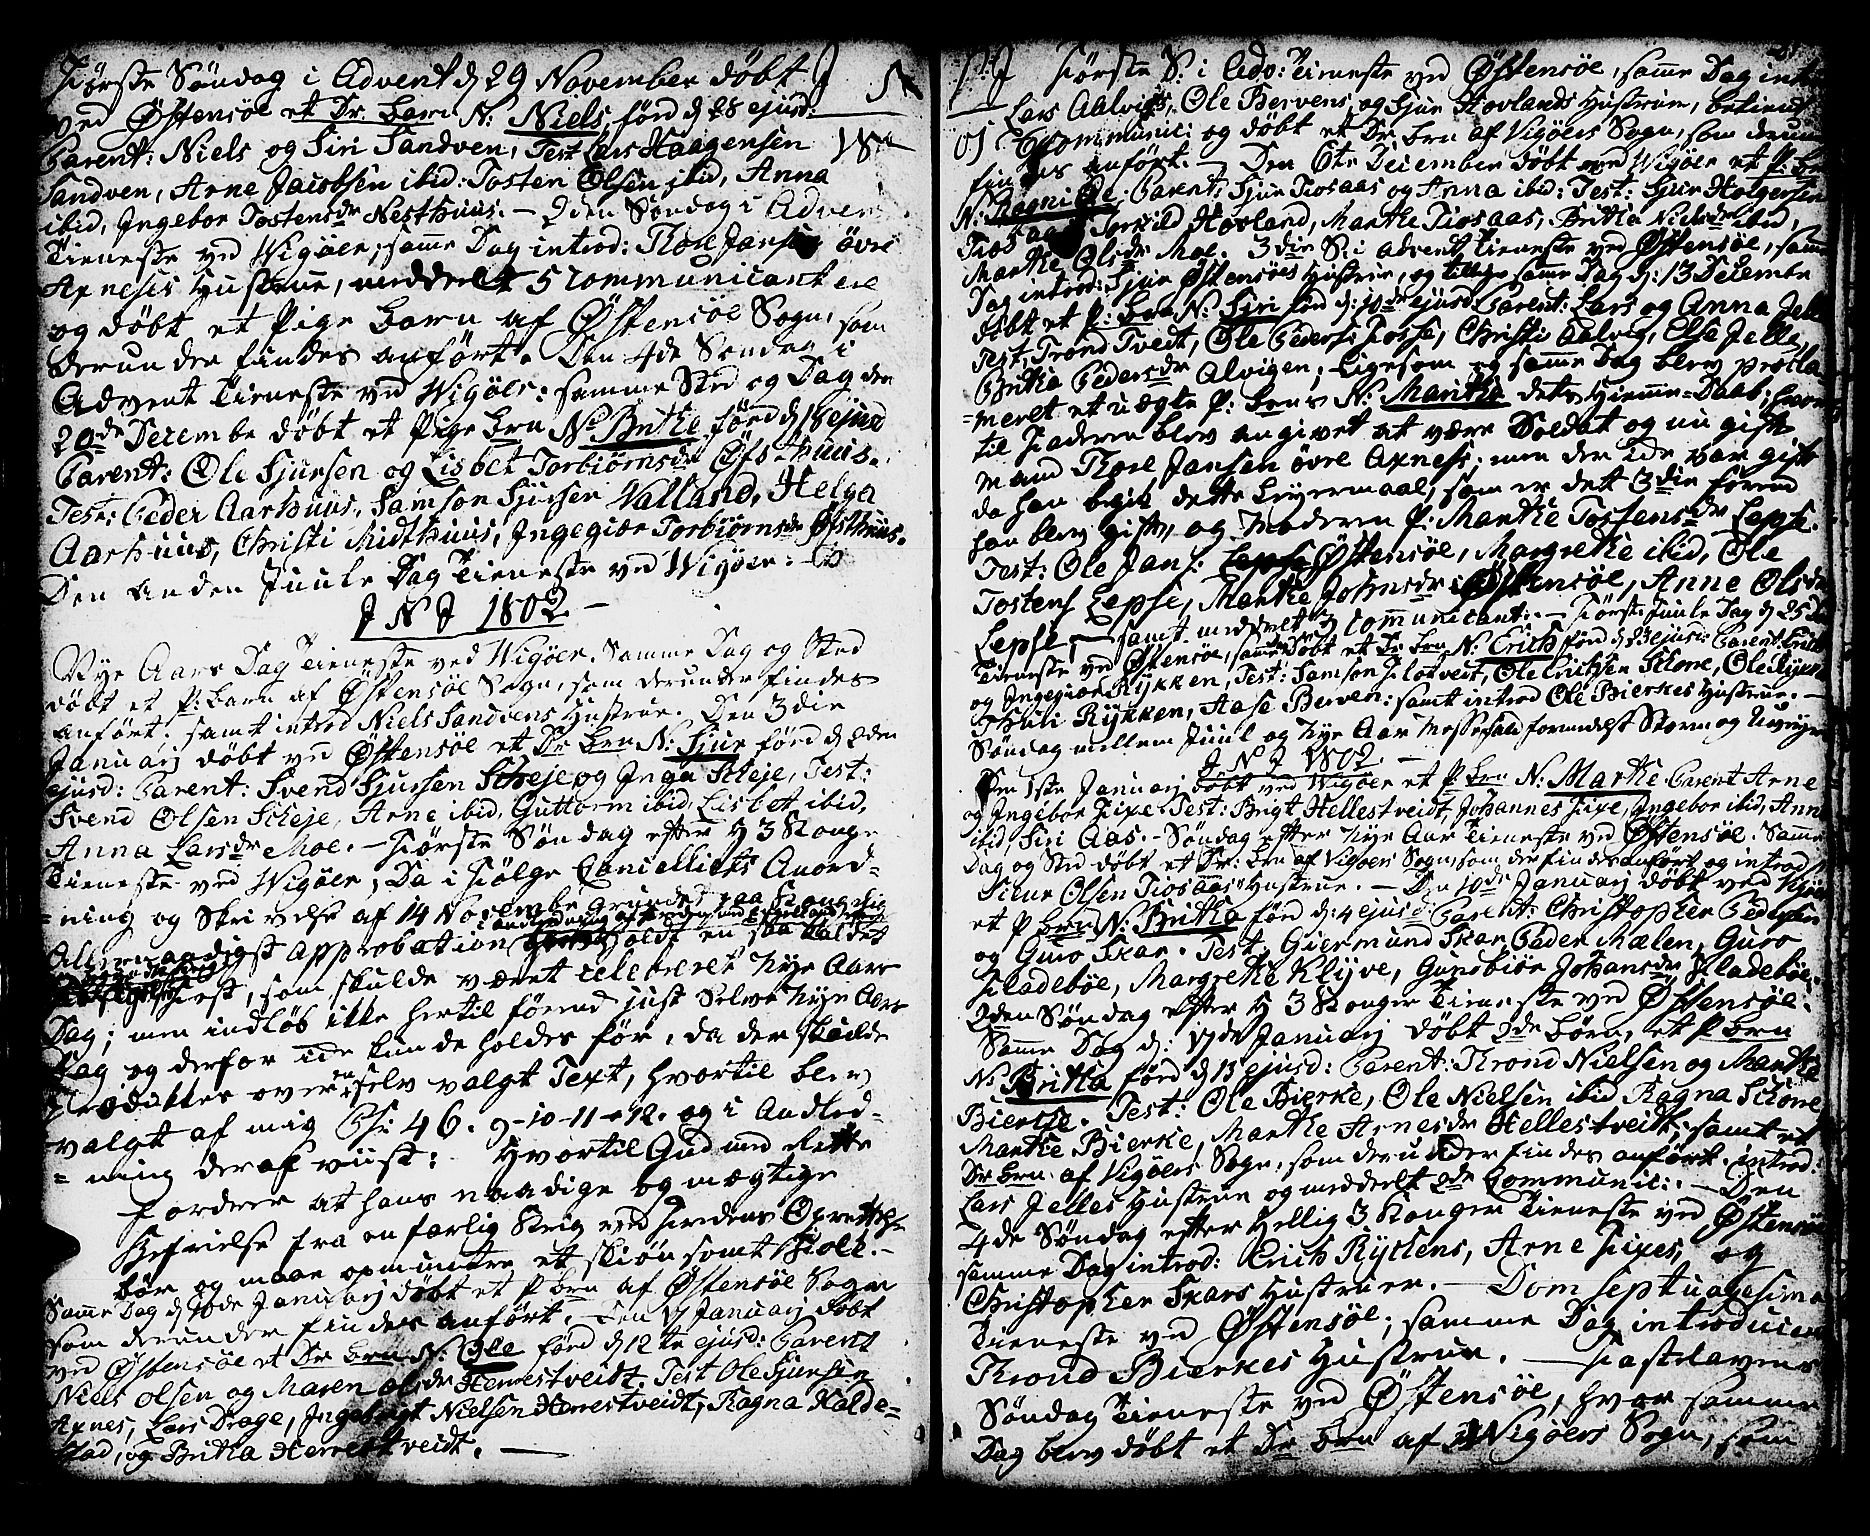 Første Søndag i Advent d 29 November døbt
ved Østensøe et Dr. Barn N: Niels førd d 28 ejusd:
Parent: Niels og Siri Sandven, Test Lars Haagensen
Sandven, Arne Jacobsen ibid: Tosten Olsen ibid, Anna
ibid, Ingebor Tostensdr Nesthuus. – 2den Søndag i Advent
Tieneste ved Wigøer, samme Dag introd: Thore Jansen øvre
Axneses Hustrue, meddeelt 5 Communicantere
og døbt et Pige Barn af Østensøe Sogn, som
derunder findes anført. Den 4de Søndag i
Advent Tieneste ved Wigøer: samme Sted og Dag den
20de Decembe døbt et Pige Brn N: Brithe førd d 18 ejusd
Parent: Ole Sjursen og Lisbet Torbiørnsdr Øfsthuus.
Test: Peder Aarhuus, Samson Sjursen Valland, Helga
Aarhuus, Christi Midthuus, Ingegiær Torbiørnsdr Øfsthuus.
Den anden Juule Dag Tieneste ved Wigøer:
J N J 1802 –
Nye Aars Dag Tieneste ved Wigøer. Samme Dag og Sted
døbt et P: Barn af Østensøe Sogn, som derunder findes
anført. samt introd Niels Sandvens Hustrue. Den 3die
Januarij døbt ved Østensøe et Dr Brn N: Sjur førd d 2den
ejusd: Parent: Svend Sjursen Scheje og Inga Scheje, Test:
Svend Olsen Scheje, Arne ibid, Guttorm ibid, Lisbet ibid,
Anna Larsdr Moe. – Første Søndag efter H 3 Konge
Tieneste ved Wigøer, Da i Følge Cancelliets Anord-
=ning og Skrivelse af 14 Novembe grundet paa Kongelig
Allernaadigst Approbation holdt en saa kaldet
Fest, som skulde været celebreret Nye Aars
Dag; men indløb ikke hertil førend just Selve Nye Aars
Dag og derfor icke kunde holdes før, da der skulde
Prædikes over en selv valgt Text, hvortil blev
valgt af mig Ps: 46. 9-10-11-12. og i Andled-
=ning deraf viist: Hvortil Gud med Rette
fordrer at hans naadige og mægtige
Befrielse fra en farlig Krig ved Fredens Oprettelse
bør og maae opmuntre et skiønsomt Folk. –
Samme Dag d 10de Januarij døbt et P Brn af Østensøe Sogn
som derunder findes anført. Den 17 Januarij døbt
ved Østensøe et Dr Brn N: Ole førd d 12te ejusd: Parent
Niels Olsen og Maren Olsdr Herrestveidt, Test Ole Sjursen
Axnes, Lars Drage, Ingebrigt Nielsen Herrestveidt, Ragna Kalde-
stad, og Britha Herrestveidt. —
Første S: i Adv: Tieneste ved Østensøe, samme Dag introd
Lars Aalviks, Ole Bervens og Sjur Hovlands Hustruer, betient
Communic: og døbt et Dr Brn af Vigøers Sogn, som derunder
findes anført. – Den 6te December døbt ved Wigøer et P: Brn
N: Ragnilde Parent: Sjur Fiosaas og Anna ibid: Test: Sjur Holgersen
Fiosaas, Torkild Hovland, Marthe Fiosaas, Britha Nielsdr ibid,
Marthe Olsdr Moe. 3die S: i Advent Tieneste ved Østensøe, samme
Dag introd: Sjur Østensøes Hustrue, og tillige samme Dag d: 13 Decembe
døbt et P: Brn N: Siri førd d: 10de ejusd Parent: Lars og Anna Jelle
Test, Trond Tvedt, Ole Peders: Fosse, Christi Aalvig, Else Jelle,
Britha Pedersdr Alvigen; Ligesom og samme Dag blev procla-
=meret et uægte P: Brns N: Martha dets Hiemme-Daab; hvor
til Faderen blev angivet at være Soldat og nu gift
mand Thore Jansen øvre Axness; men der icke var gift
da han begik dette Leyermaal, som er det 3die førend
han blev gift, og Moderen P. Marthe Tostensdr Lepse.
Test: Ole Jans: Østensøe, Margrethe ibid, Ole
Tostens Lepse, Marthe Johnsdr Østensøe, Anne Olsdr
Lepse, – samt meddeelt Communicant: – Første Juule Dag d 25 De
Tieneste ved Østensøe, samme døbt et Dr Brn N: Erich førd d 23 ejusd: Parent: Erich
og Ingegiær Rykken, Test: Samson Flotveit, Ole Erichsen Schone, Ole Rykken
Guri Rykken, Aase Berven: samt introd Ole Bierkes Hustrue. –
Søndag mellem Juul og Nye Aar Messefald formedelst Storm og Uveyr
J N J 1802. –
Den 1ste Januarij døbt ved Wigøer et P Brn N: Marthe Parent Arne
og Ingebor Fixe. Test: Brigt Hellestveidt, Johannes Fixe, Ingebor ibid, Anna
ibid, Siri Aas. – Søndag efter Nye Aar Tieneste ved Østensøe. Samme
Dag og Sted døbt et Dr: Brn af Vigøers Sogn, som der findes anført og introd
Siur Olsen Fiosaas's Hustrue. – Den 10de Januarij døbt ved Wigøer
et P Brn N: Britha førd d: 4 ejusd: Parent: Christopher Pedersen
og Guro Skar. Test: Giermund Skar, Peder Mælen, Guro
Fladebøe, Margrethe Klyve, Gunobiør Johansdr Fladebøe.
2den Søndag efter H 3 Konger Tieneste ved Østensøe.
Samme Dag d: 17de Januarij døbt 2de Børn, et P Brn
N: Britha førd d 13 ejusd: Parent: Thrond Nielsen og Martha
Bierche. Test: Ole Bierke, Ole Nielsen ibid Ragna Schone
Marthe Bierke, Marthe Arnesdr Hellestveidt, samt et
Dr Brn af Vigøers Sogn, som derunder findes anført. introd:
Lars Jelles Hustrue og meddeelt 2de Communic: – Den
4de Søndag efter Hellig 3 Konger Tieneste ved Østensøe
samme Dag introd: Erich Rykkens, Arne Fixes, og
Christopher Skars Hustruer. – Dom Septuagesima
Tieneste ved Østensøe; samme Dag introduceret
Thrond Bierkes Hustrue. – Fastelavens
Søndag Tieneste ved Østensøe, hvor samme
Dag blev døbt et Dr Brn af Wigøers Sogn, som